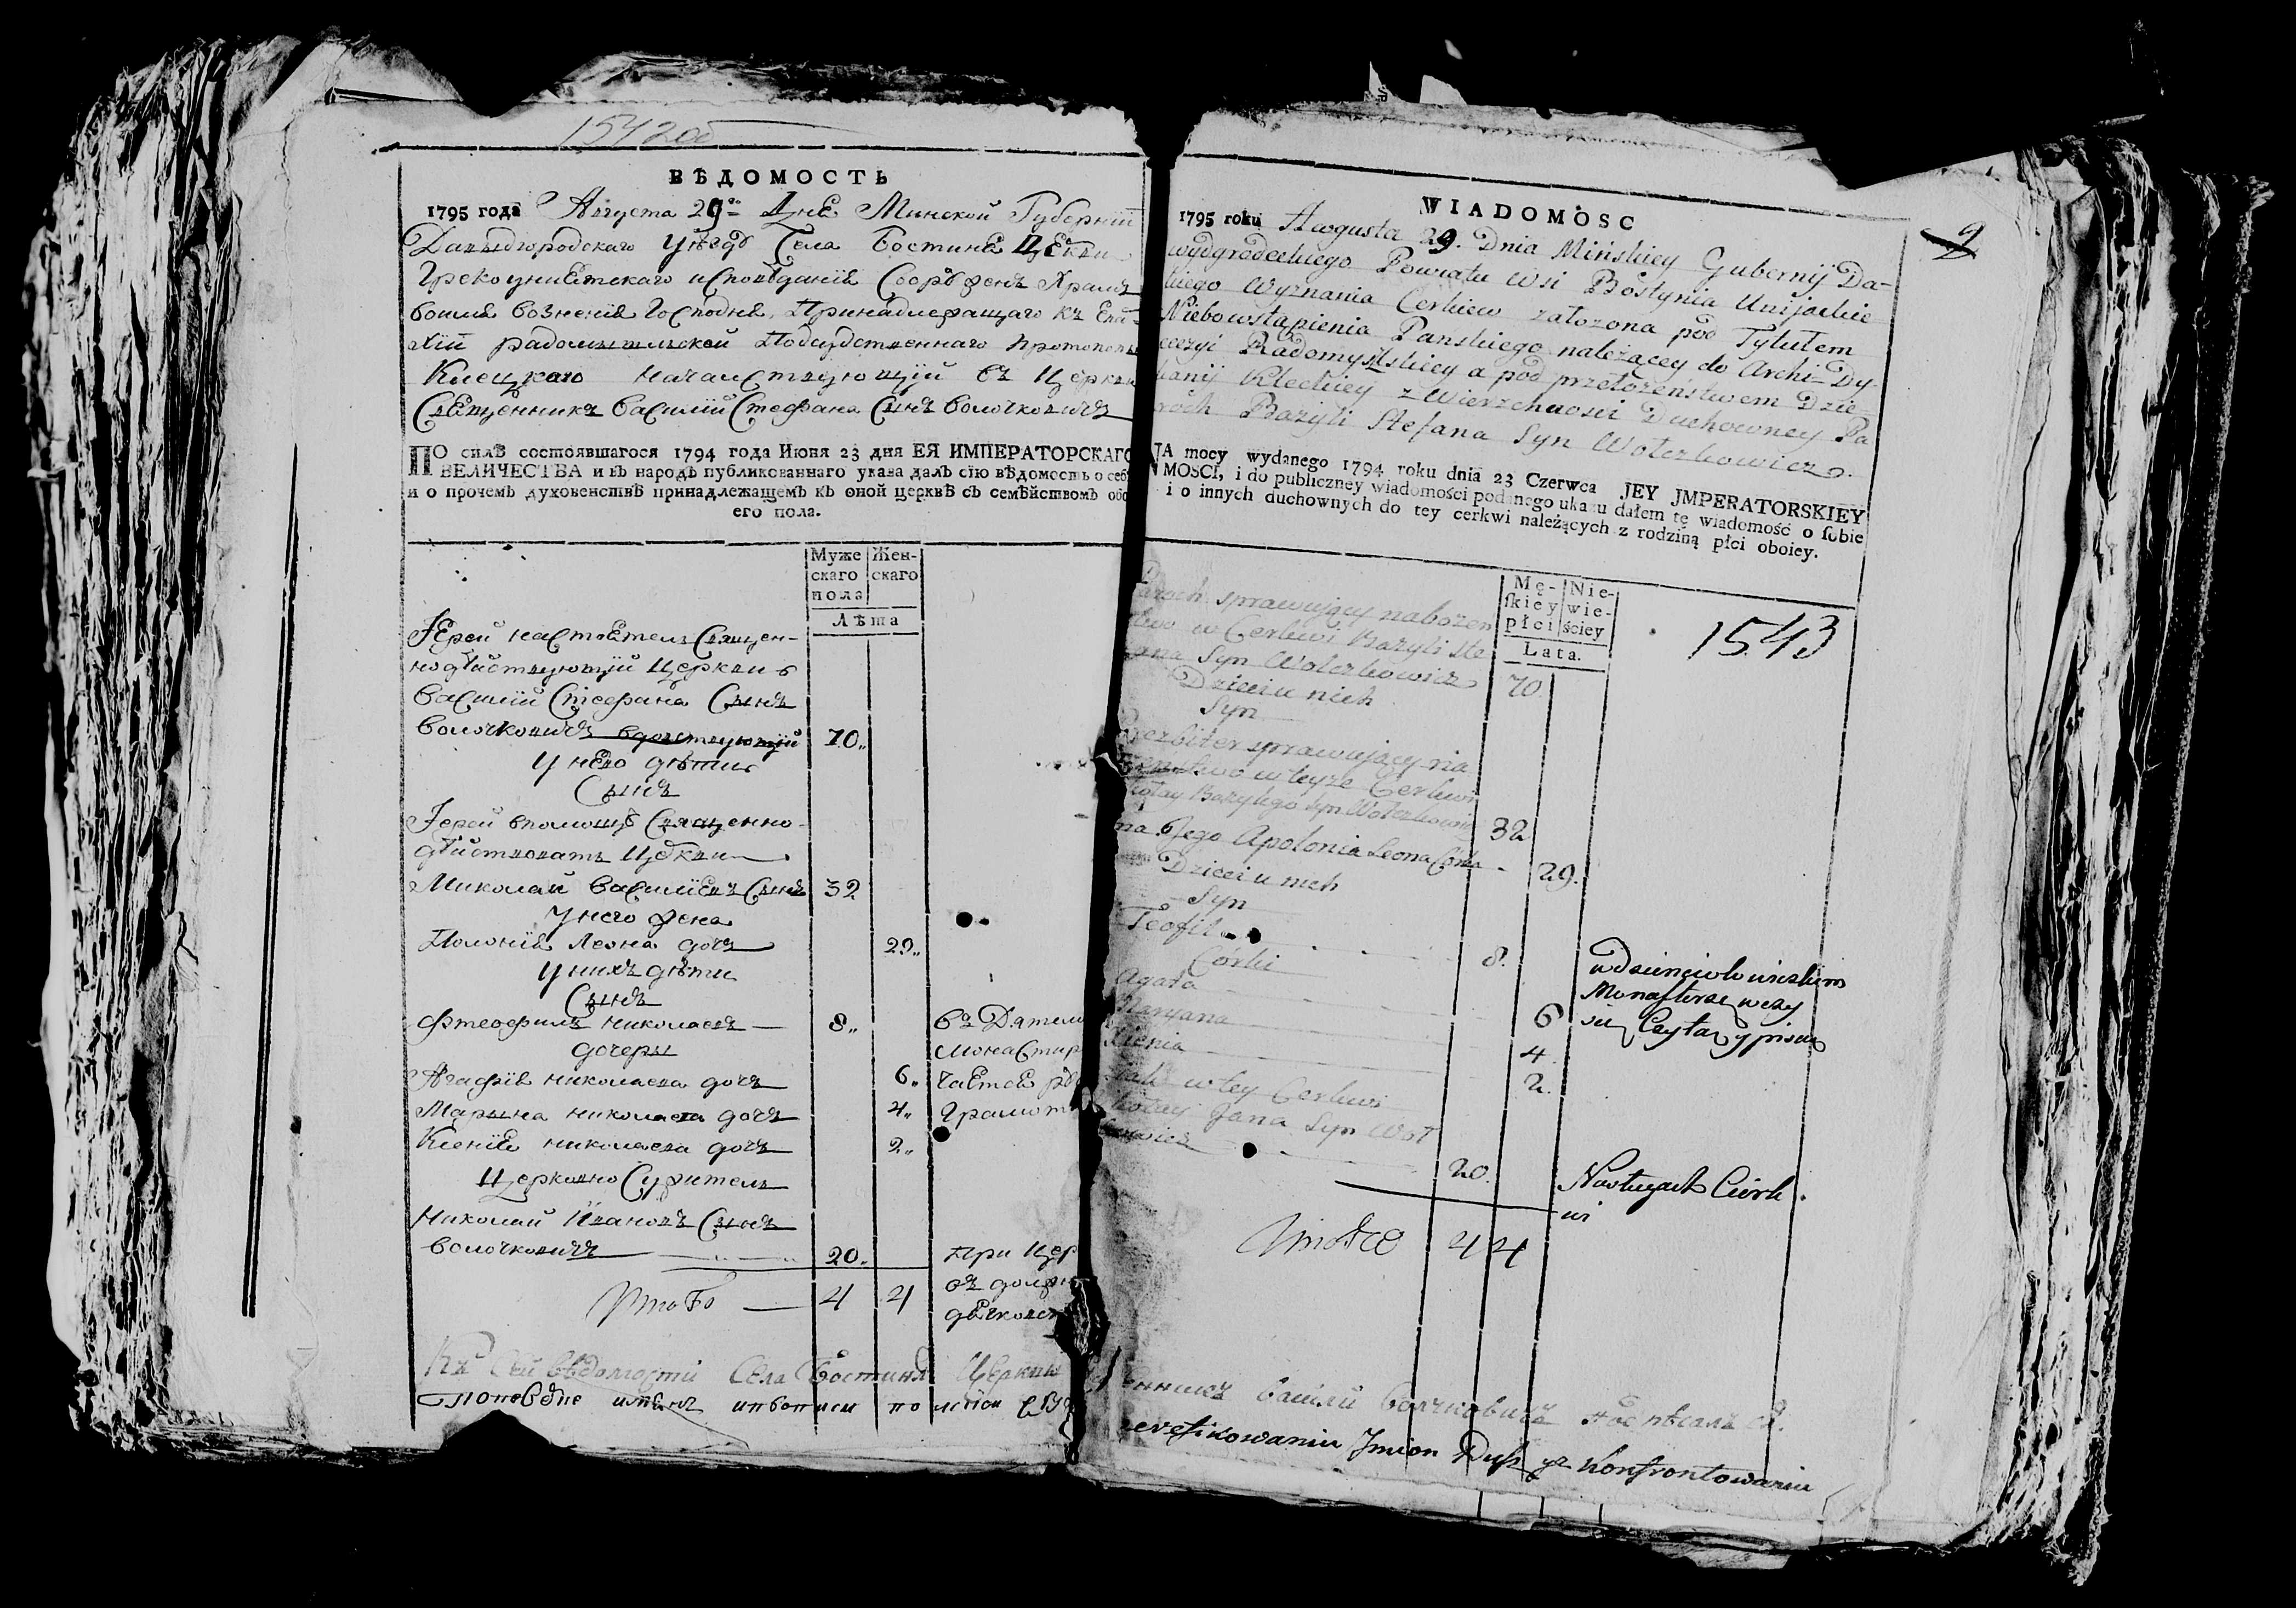 1542об
ВѢДОМОСТЬ
1795 года Августа 29го Дня Минской Губерніи
Давыдгородскаго уѣзда Села Бостиня Церкви
Грекоуниетскаго исповѣданія Сооруженъ Храмъ
вои​мя вознесенія Господня, Принадлежащаго къ Епа-
хіи радомышльской Подсудственнаго протопопы
Клецкаго начальствующій въ Церкви
Священникъ Василій Стефана Сынъ Волочковичъ
ПО силѣ состоявшагося 1794 года Июня 23 дня ЕЯ ИМПЕРАТОРСКАГО
ВЕЛИЧЕСТВА и въ народъ публикованнаго указа далъ сію вѣдомость о себѣ
и о прочемъ духовенствѣ принадлежащемъ къ оной церквѣ съ семѣйствомъ обо
его пола.
Муже скаго пола
Жен- скаго
Лѣта
Іерей настоятель Священ-
нодѣйствующій Церкви
Василій Стефана Сынъ
Волочковичъ вдовствующій 70
У него дѣти
Сынъ
Іерей впомощь Священно-
дѣйствовать Церкви
Миколай Василіевъ Сынъ 32
Унего жена
Полонія Леона дочь 29
У нихъ дѣти
Сынъ
Фтеофилъ николаевъ 8 въ Дятел
дочеры монастир
Агафія николаева дочь 6
Марына николаева дочь 4 грамот
Ксенія николаева дочь 2
Церковно Служитель
Николай Ивановъ Сынъ
Волочковичъ 20 При Цер
Итого 4 4 въ долж
дячковс
Къ сей вѣдомости Села Бостиня Церкви
WIADOMOSC
1795 roku Augusta 29. Dnia Minskiey Gubernij Da-
wydgrodeckiego Powiatu Wsi Bostynia Unijackie
kiego Wyznania Cerkiew załozona pod Tytułem
Niebowstąpienia Panskiego należącey do Archi-Dy-
ecezyi Radomyslskiey a pod przełożeństwem Dzie-
kanij Kleckiey z Wierzchnosci Duchowney Pa
roch Bazyli Stefana Syn Wołczkowicz.
NA mocy wydanego 1794 roku dnia 23 Czerwca JEY JMPERATORSKIEY
MOSCI, i do publiczney wiadomości podanego ukazu dałem tę wiadomość o ſobie
i o innych duchownych do tey cerkwi należących z rodziną płci oboiey.
Mę- ſkiey płci
Nie- wie- ściey
Lata.
1543
Paroch sprawujący nabozen
stwo w Cerkwi Bazyli Ste
fana Syn Wołczkowicz 70
Dzieci u nich
Syn
Prezbiter sprawujący na
bozenstwo w teyze Cerkwi
Mikołay Bazylego Syn Wołczkowicz 32
Zona Jego Apolonia Leona Córka 29.
Dzieci u nich
Syn
Teofil 8.
Córki
Agata 6
Maryana 4
Xienia 2.
Diak w tey Cerkwi
Mikołay Jana Syn Woł
czkowicz 20.
w dzienciołowickim
Monasterze uczy
się Czytać y pisać
Na usługach Cierk
wi
Itogo 4 4
Священникъ Василій Волчковичъ подписалъся.
zweryfikowaniu Jmion Dusz y z Konfrontowaniu